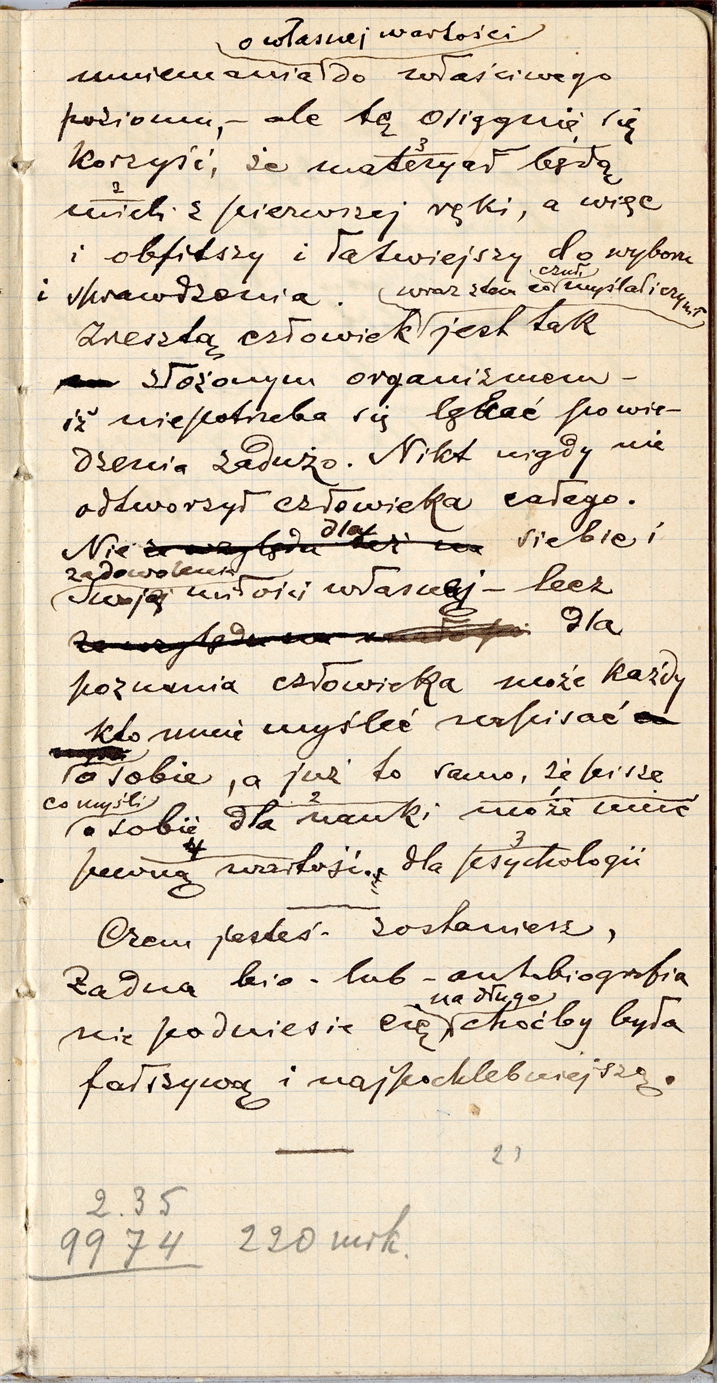 o własnej wartości
mniemania do właściwego
poziomu, – ale tę osiągnie się
korzyść, że materyał będą
mieli z pierwszej ręki, a więc
i obfitszy i łatwiejszy do wyboru
i sprawdzenia.
wraz z tem co czuł myślał i czynił
Zresztą człowiek jest tak
złożonym organizmem –
iż niepotrzeba się lękać powie-
dzenia zadużo. Nikt nigdy nie
odtworzył człowieka całego.
Nie ze względu też na dla siebie i
zadowolenia
swojej miłości własnej – lecz
ze względu na dla
poznania człowieka może każdy
kto umie myśleć napisać
o sobie, a już to samo, że pisze
co myśli
o sobie dla nauki może mieć
pewną wartość. dla psychologii
Czem jesteś – zostaniesz,
Żadna bio – lub – autobiografia
na długo
nie podniesie cię choćby była
fałszywą i najpochlebniejszą.
2)
2.35
9974 220 mrk.